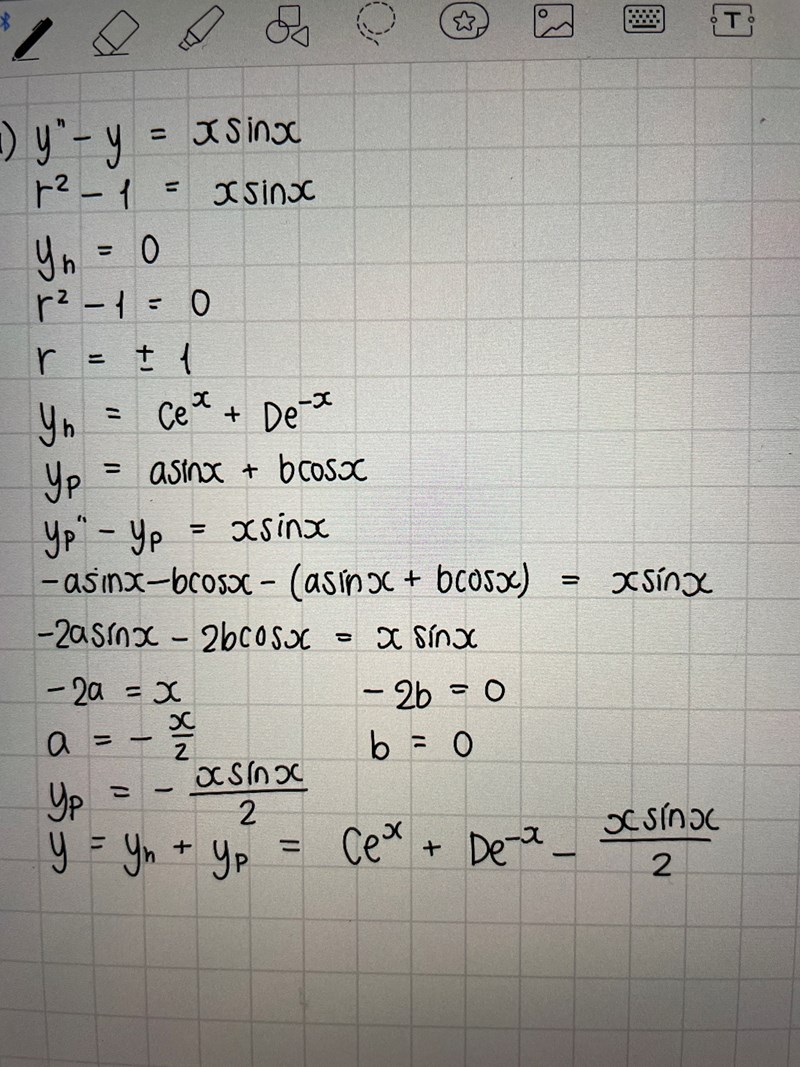 1) y" - y = xsinx
r² - 1 = xsinx
yₕ = 0
r² - 1 = 0
r = ± 1
yₕ = Ceˣ + De⁻ˣ
yₚ = asinx + bcosx
yₚ" - yₚ = xsinx
-asinx-bcosx - (asinx + bcosx) = xsinx
-2asinx - 2bcosx = x sinx
-2a = x -2b = 0
a = - x/2 b = 0
yₚ = - xsinx/2
y = yₕ + yₚ = Ceˣ + De⁻ˣ - xsinx/2
T